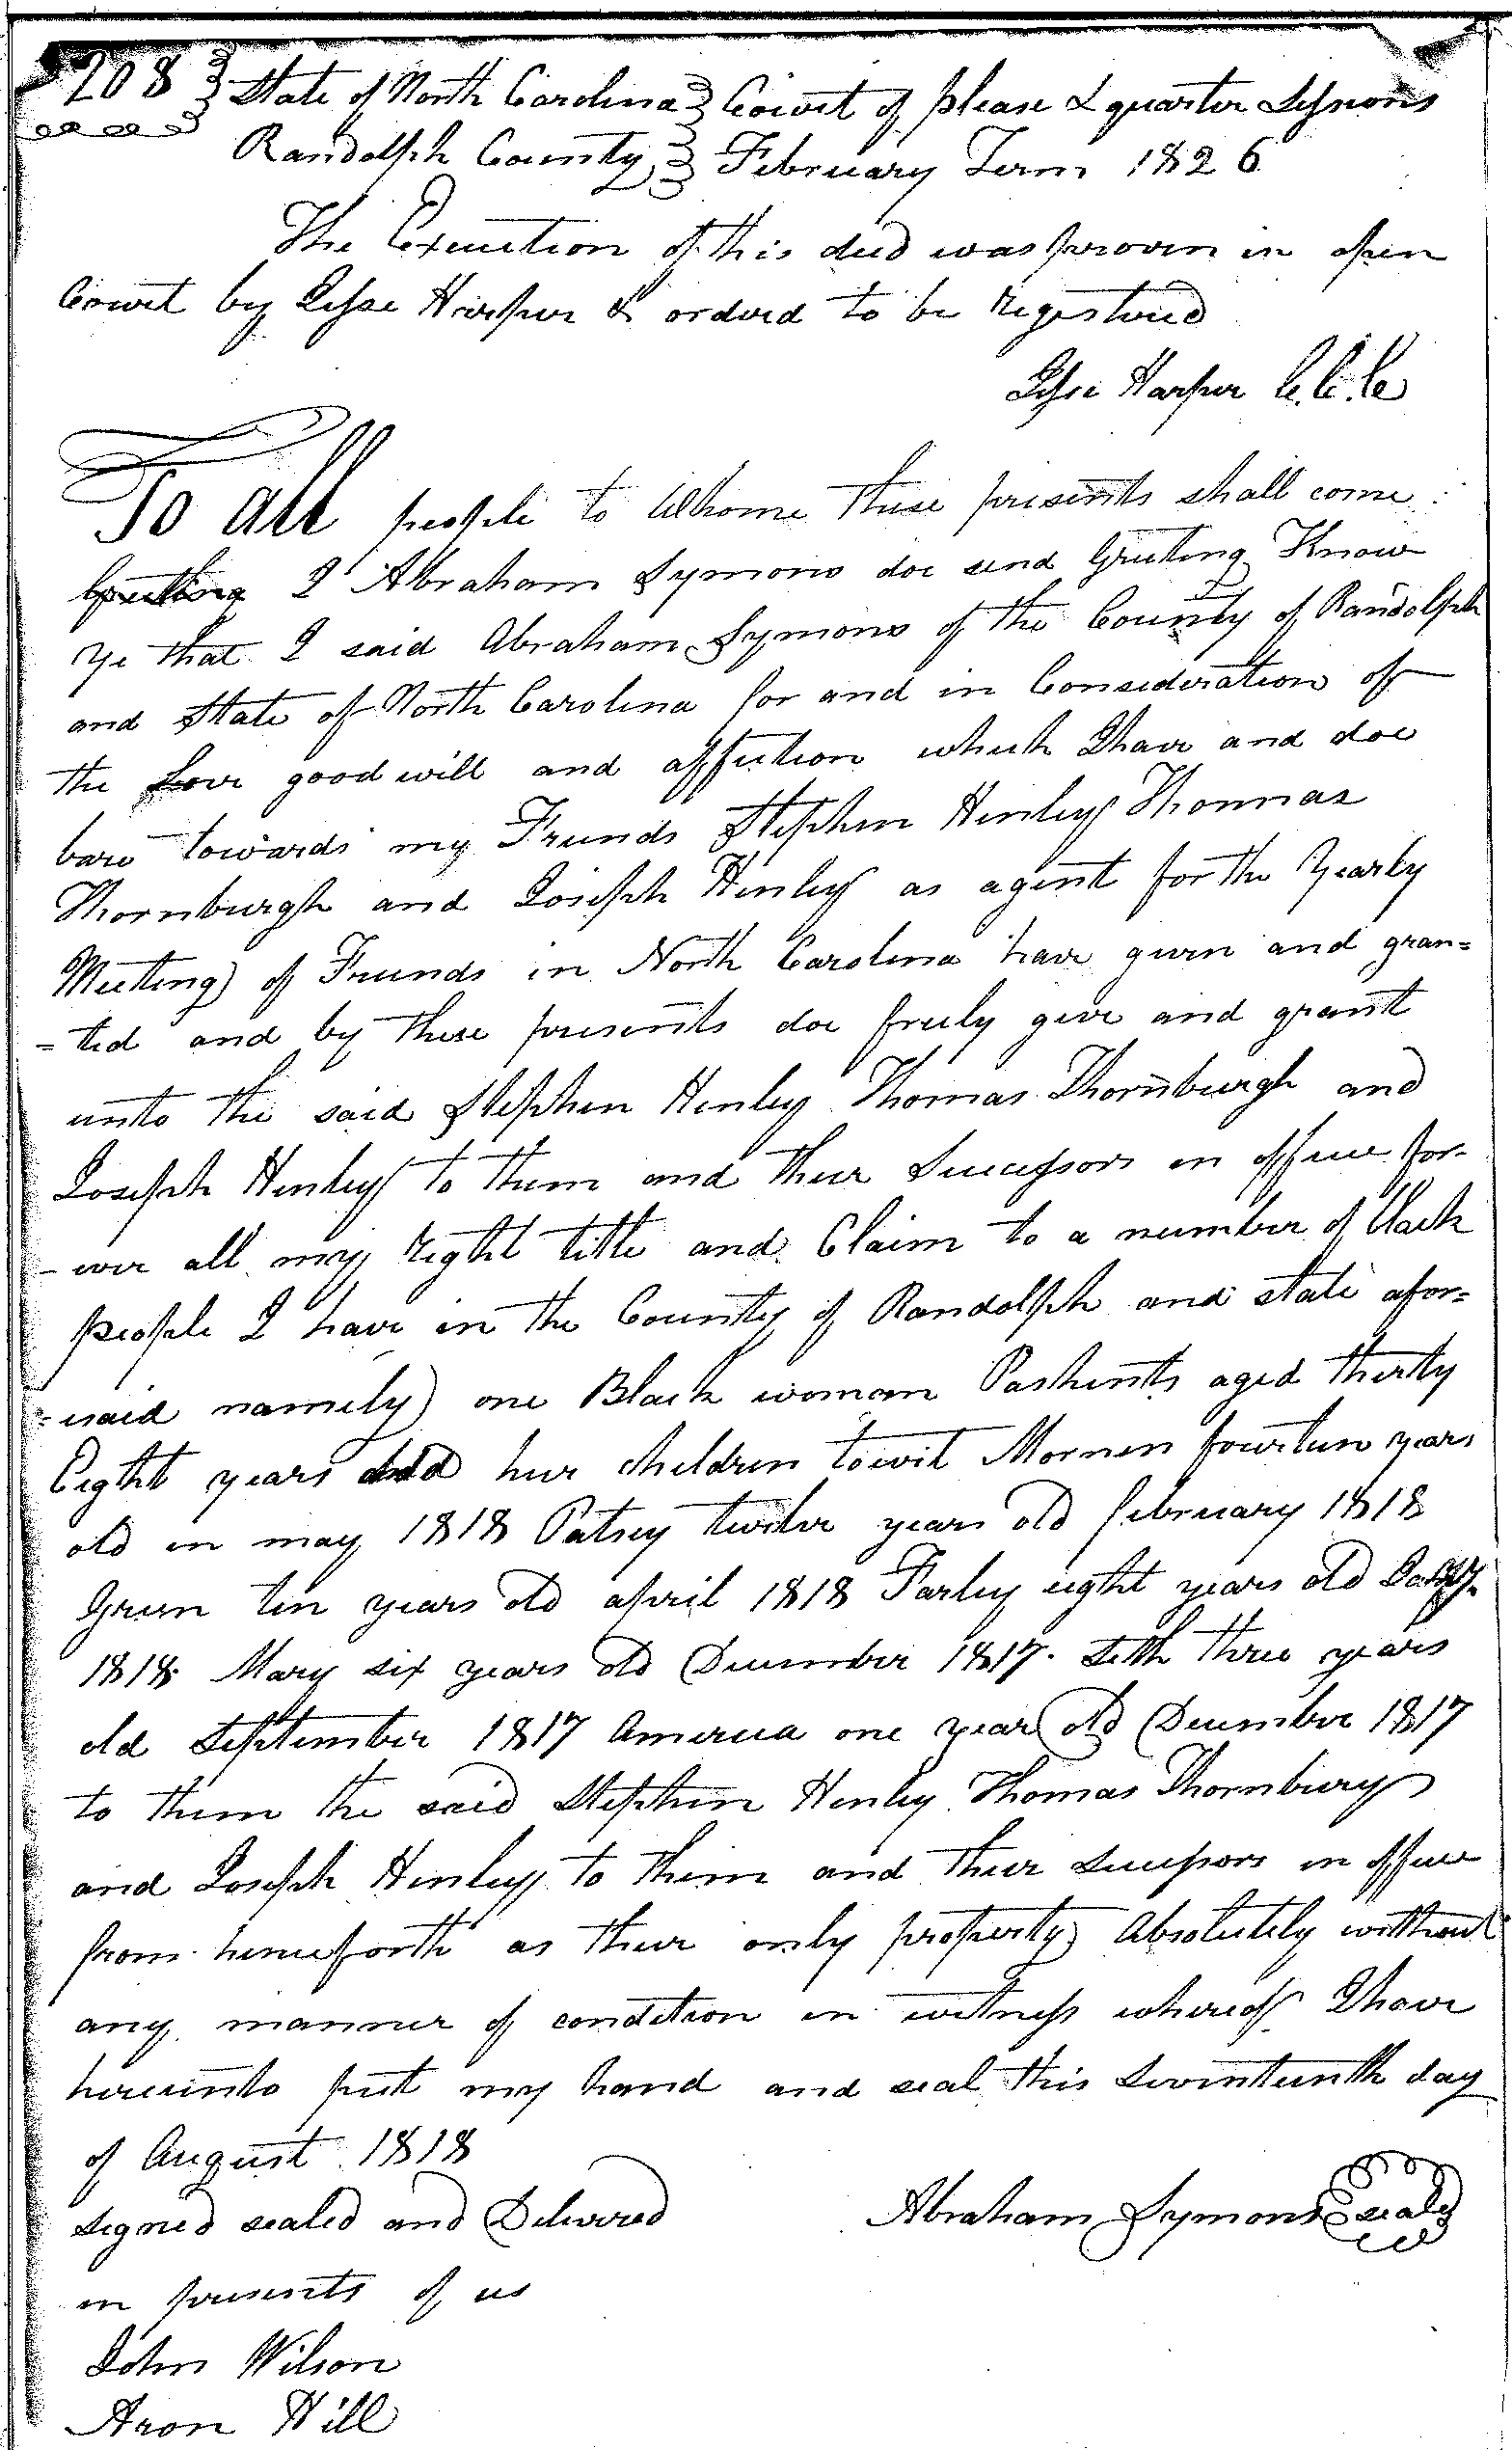 208 State of North Carolina Court of please & quarter Sessions
Randolph County February Term 1826
The Execution of this deed was proven in open
Court by Jesse Harper & ordered to be registered
Jesse Harper C.C.C.
To all people to Whome these presents shall come
Greeting I Abraham Symons doe send Greeting Know
Ye that I said Abraham Symons of the County of Randolph
and State of North Carolina for and in Consideration of
the Love good will and affection which I have and doe
bare towards my Friends Stephen Henley Thomas
Thornburgh and Joseph Henley as agent for the Yearly
Meeting of Friends in North Carolina have given and gran=
=ted and by these presents doe freely give and grant
unto the said Stephen Henley Thomas Thornburgh and
Joseph Henley to them and their Successors in office for-
-ever all my right title and Claim to a number of black
people I have in the County of Randolph and state afor=
=said namely) one Black woman Pashents aged therty
Eight years and her children towit Mornen fourteen years
old in may 1818 Patsey twelve years old february 1818
Green ten years old april 1818 Farley eight years old
1818 Mary six years old December 1817. Seth three years
old September 1817 America one year old December 1817
to them the said Stephen Henley Thomas Thornbury
and Joseph Henley to them and their successors in office
from henceforth as their only property Absolutely without
any manner of condition in witness whereof I have
hereunto put my hand and seal this Seventeenth day
of August 1818
signed sealed and Delivered
Abraham Symons seal
in presents of us
John Wilson
Aron Hill